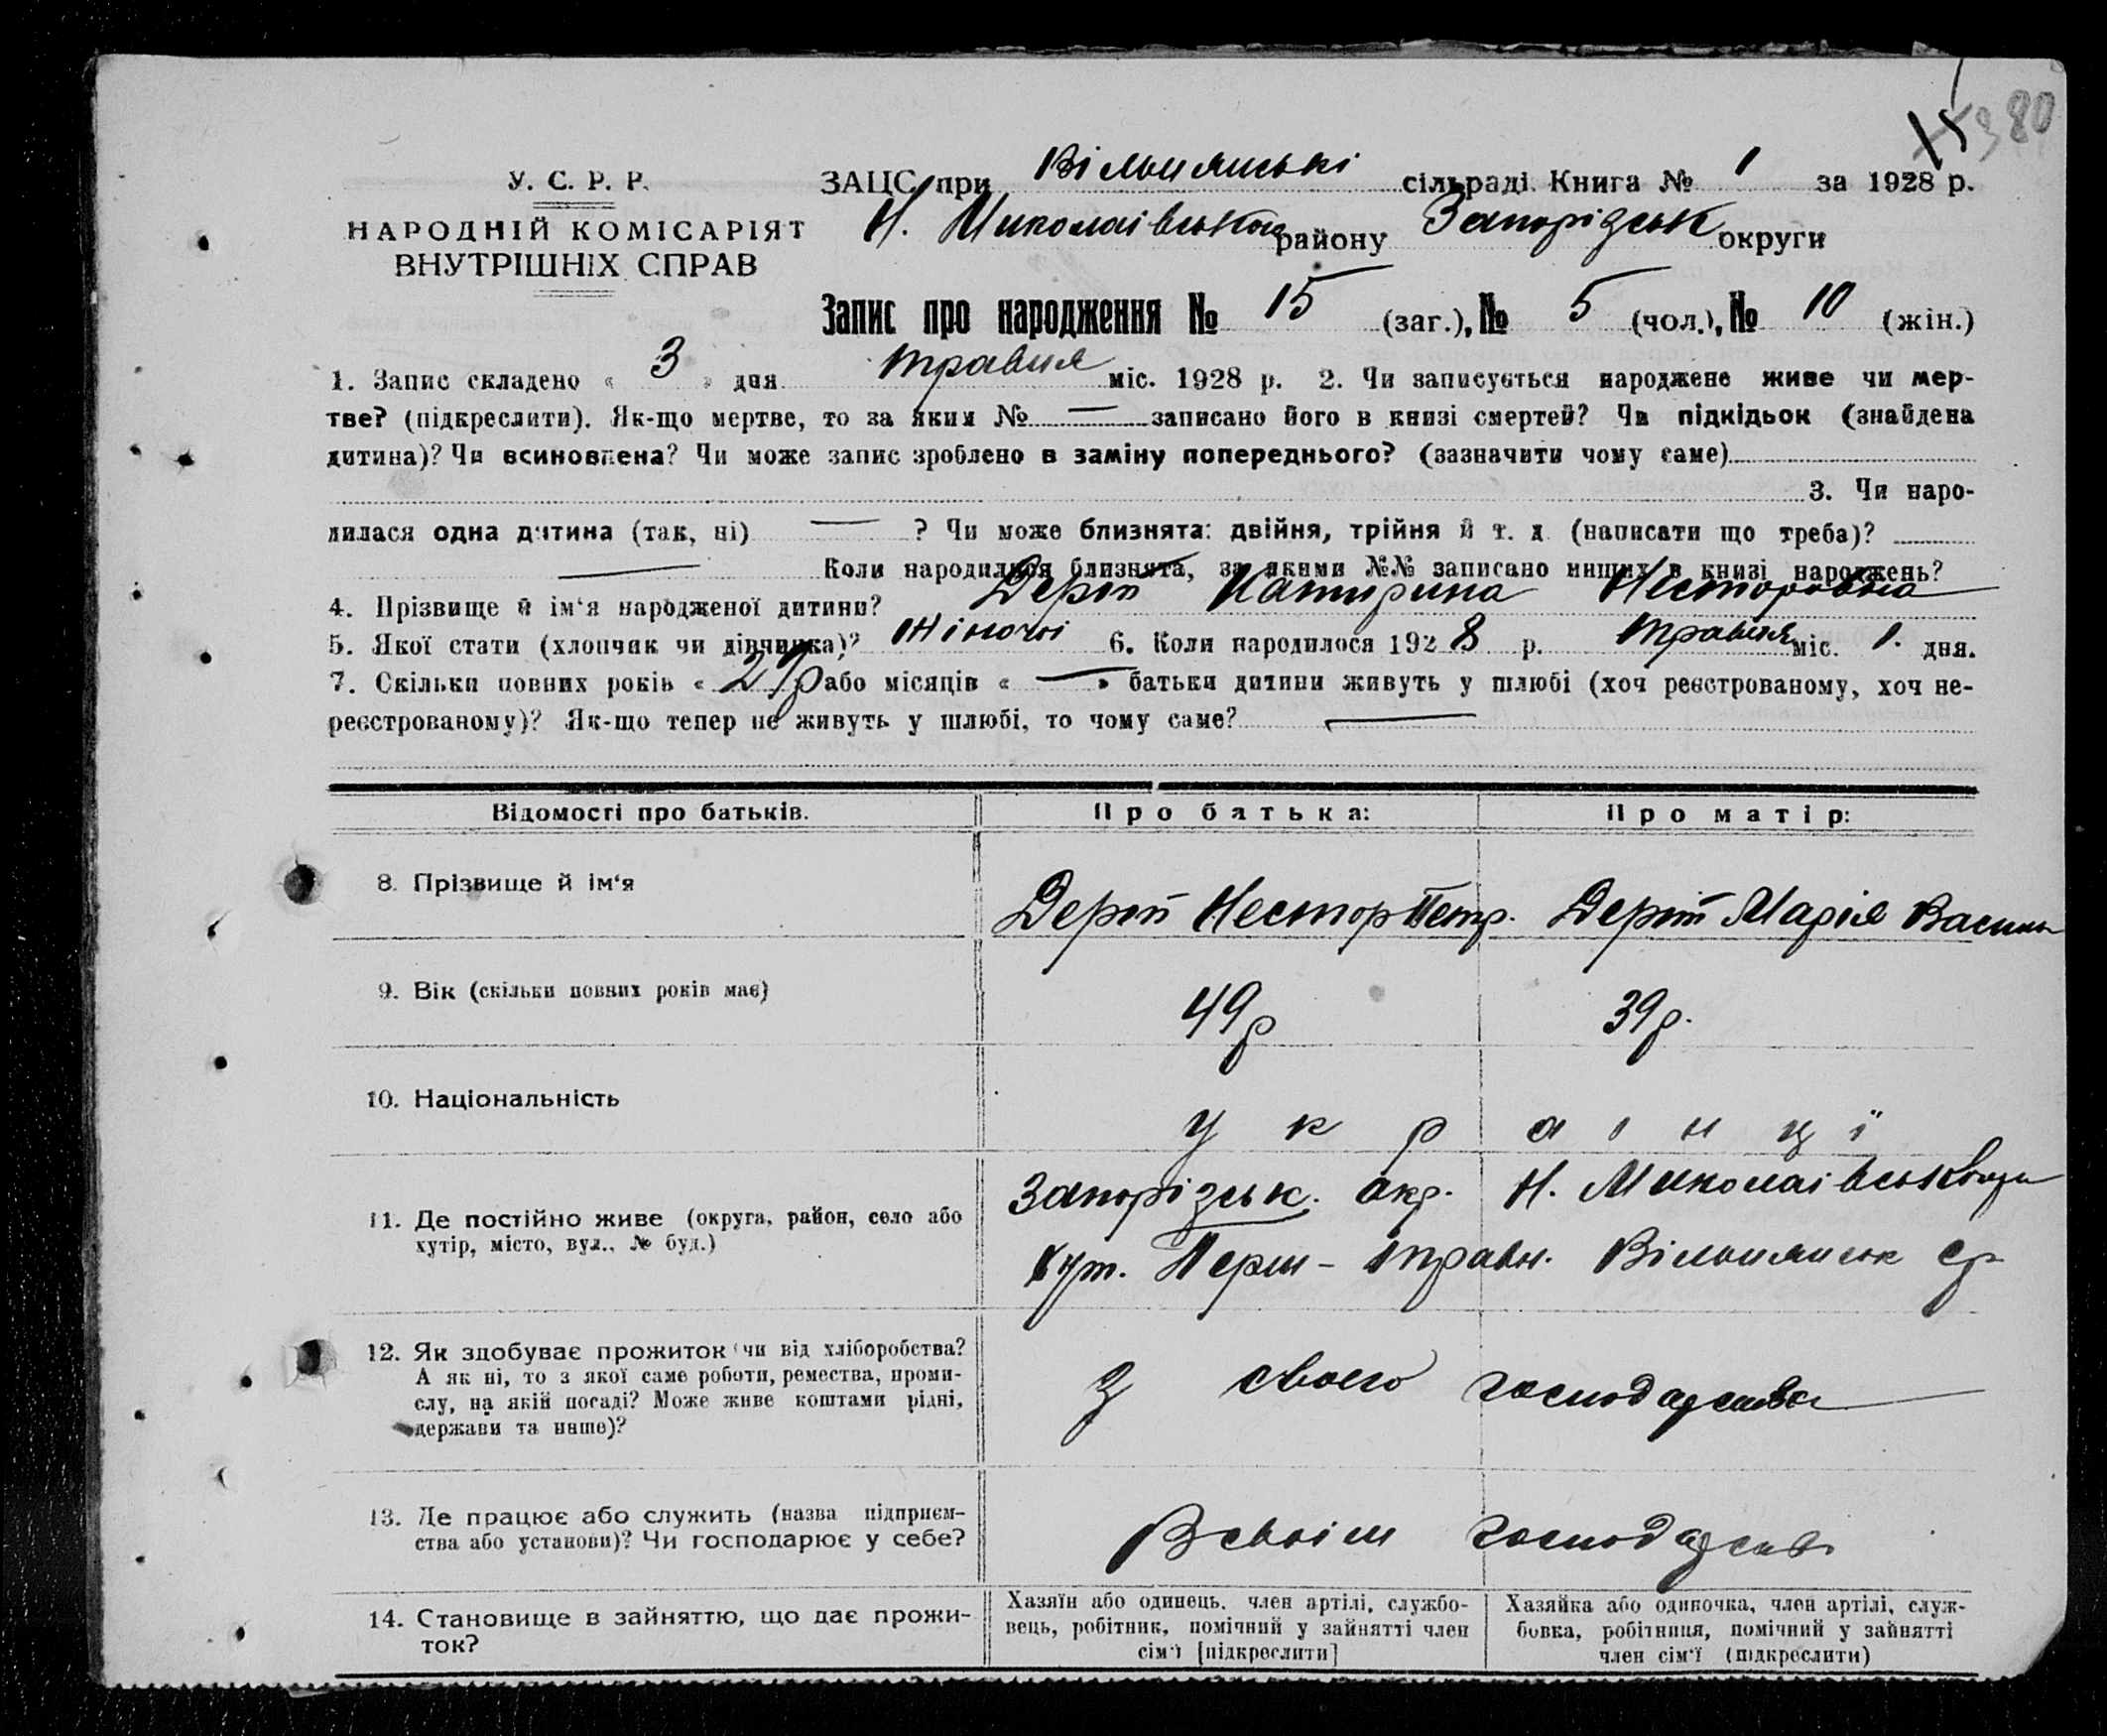 15 380
У. С. Р. Р.
НАРОДНІЙ КОМІСАРІЯТ
ВНУТРІШНІХ СПРАВ
ЗАЦС при Вільнянські сільраді. Книга № 1 за 1928 р.
Н. Миколаівського району Запорізськ округи
Запис про народження № 15 (заг.), № 5 (чол.), № 10 (жін.)
1. Запис складено « 3 » дня травня міс. 1928 р. 2. Чи записується народжене живе чи мер-
тве? (підкреслити). Як-що мертве, то за яким № — записано його в книзі смертей? Чи підкідьок (знайдена
дитина)? Чи всиновлена? Чи може запис зроблено в заміну попереднього? (зазначити чому саме)
3. Чи наро-
дилася одна дитина (так, ні) — ? Чи може близнята: двійня, трійня й т. д. (написати що треба)?
— Коли народилися близнята, за якими №№ записано инших в книзі народжень?
4. Прізвище й ім‘я народженої дитини? Катирина Несторовна
5. Якої стати (хлопчик чи дівчинка)? Жіночі 6. Коли народилося 1928 р. травня міс. 1. дня.
7. Скільки повних років « 21 р або місяців « — » батьки дитини живуть у шлюбі (хоч реєстрованому, хоч не-
реєстрованому)? Як-що тепер не живуть у шлюбі, то чому саме? —
Відомості про батьків. Про батька: Про матір:
8. Прізвище й ім‘я Нестор Петр. Марія Василь
9. Вік (скільки повних років має) 49 р 39 р.
10. Національність украінці
11. Де постійно живе (округа, район, село або
хутір, місто, вул., № буд.)
Запорізськ. окр. Н. Миколаівськ
Хут. Перш-травн. Вільнянськ ср
12. Як здобуває прожиток (чи від хліборобства?
А як ні, то з якої саме роботи, ремества, проми-
слу, на якій посаді? Може живе коштами рідні,
держави та инше)?
З своего господарства
13. Де працює або служить (назва підприєм-
ства або установи)? Чи господарює у себе?
В своім господарстві
14. Становище в зайняттю, що дає прожи-
ток?
Хазяїн або одинець, член артілі, службо-
вець, робітник, помічний у зайнятті член
сім‘ї [підкреслити]
Хазяйка або одиночка, член артілі, служ-
бовка, робітниця, помічний у зайнятті
член сім‘ї (підкреслити)